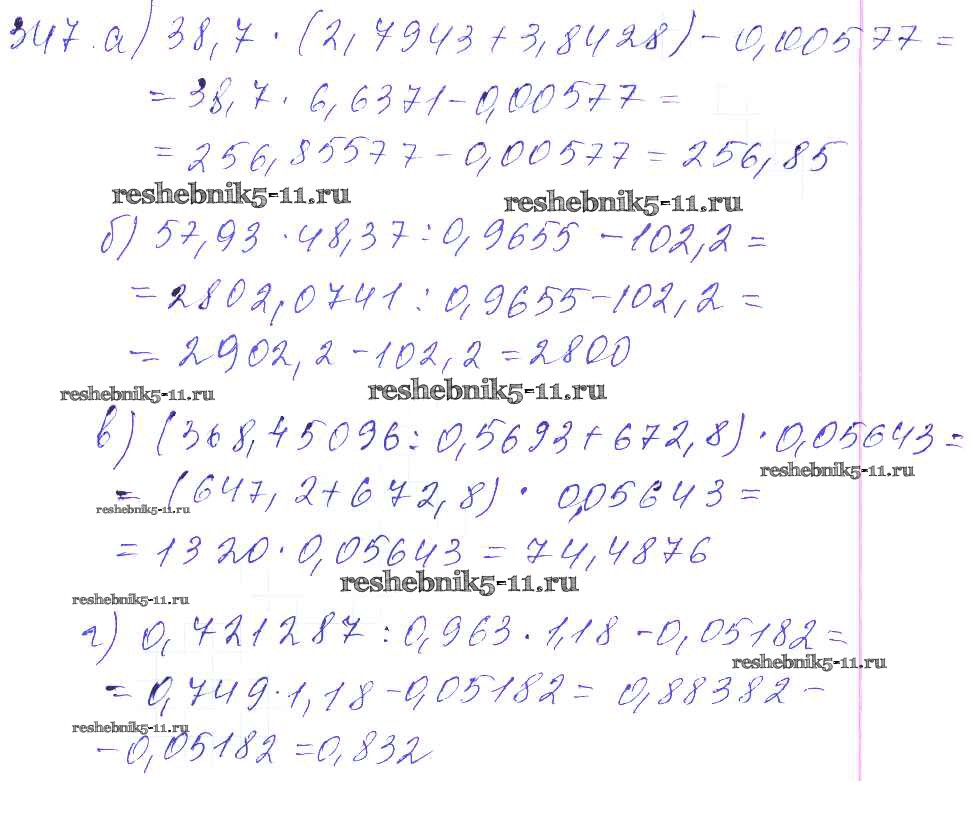 347. а) 38,7 · (2,7943 + 3,8428) - 0,00577 =
= 38,7 · 6,6371 - 0,00577 =
= 256,85577 - 0,00577 = 256,85
reshebnik5-11.ru reshebnik5-11.ru
б) 57,93 · 48,37 : 0,9655 - 102,2 =
= 2802,0741 : 0,9655 - 102,2 =
= 2902,2 - 102,2 = 2800
reshebnik5-11.ru reshebnik5-11.ru
в) (368,45096 : 0,5693 + 672,8) · 0,05643 =
reshebnik5-11.ru
= (647,2 + 672,8) · 0,05643 =
reshebnik5-11.ru
= 1320 · 0,05643 = 74,4876
reshebnik5-11.ru
reshebnik5-11.ru
г) 0,721287 : 0,963 · 1,18 - 0,05182 =
reshebnik5-11.ru
= 0,749 · 1,18 - 0,05182 = 0,88382 -
reshebnik5-11.ru
- 0,05182 = 0,832